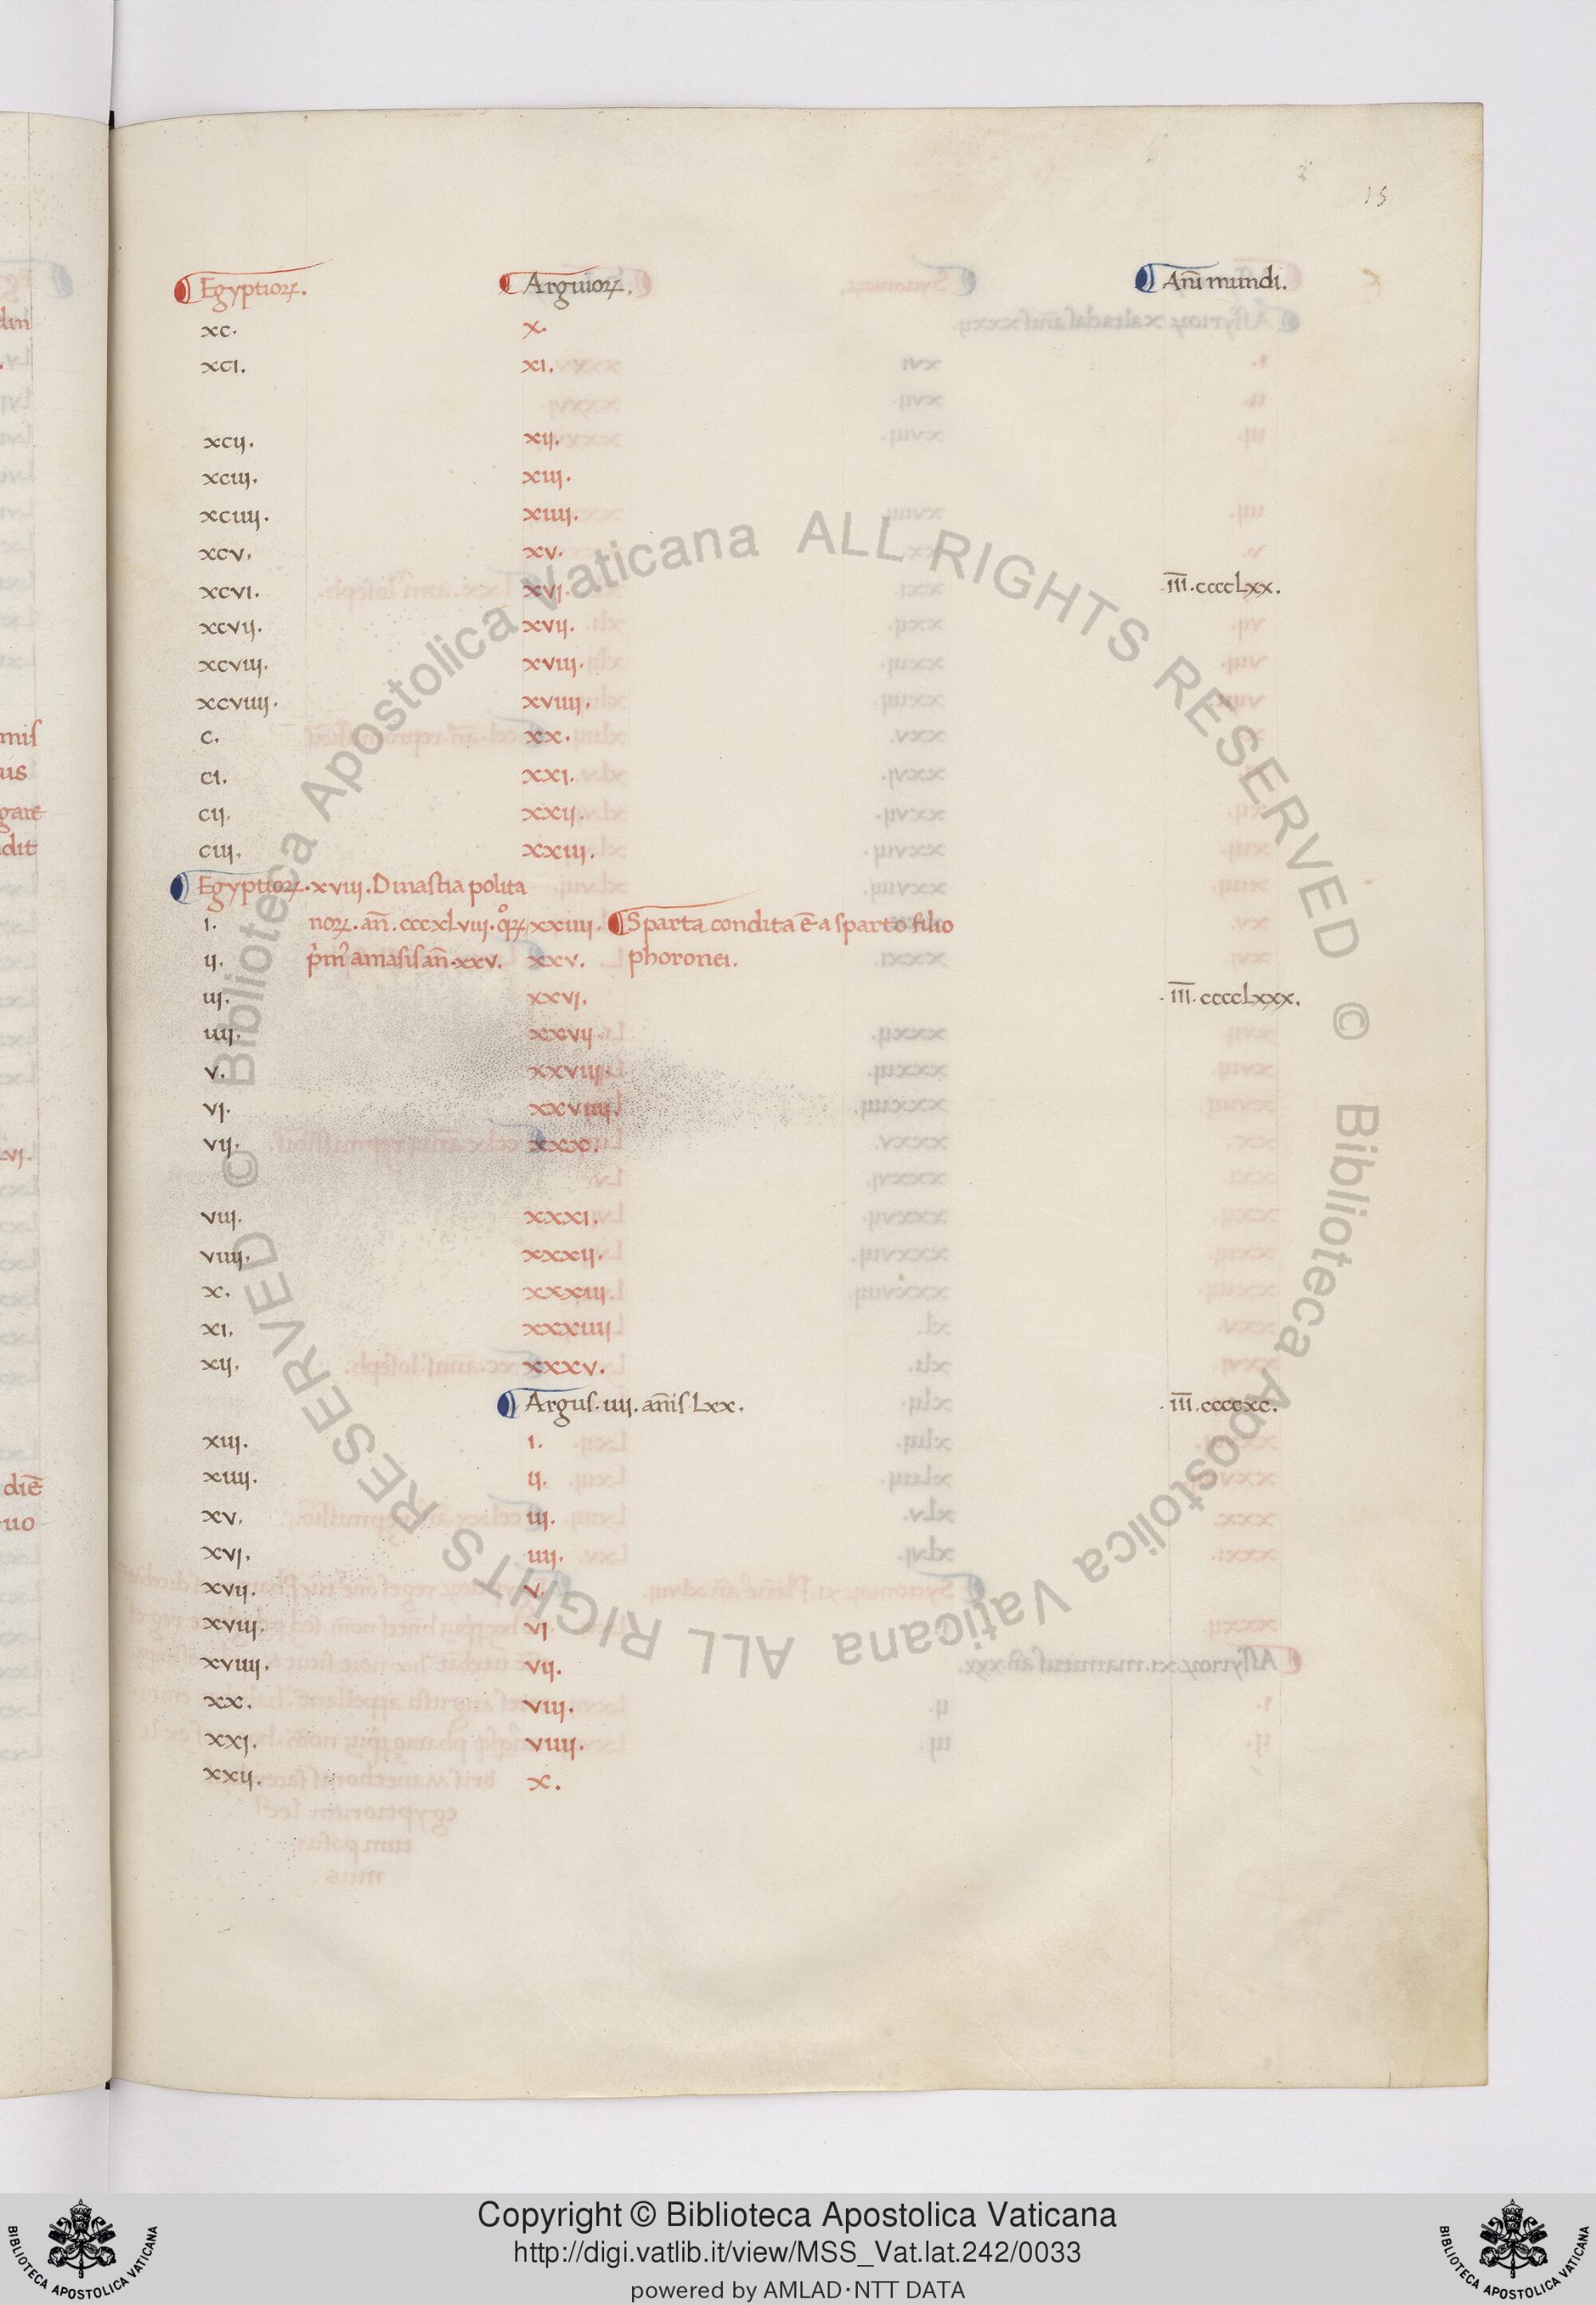 15
Egyptioꝝ. Arguioꝝ. Anı̄ mundi.
xc. x.
xci. xi.
xcij. xij.
xciij. xiij.
xciiij. xiiij.
xcv. xv.
xcvi. xvj. .III̅.ccccLxx.
xcvij. xvij.
xcviij. xviij.
xcviiij. xviiij.
c. xx.
ci. xxi.
cij. xxij.
ciij. xxiij.
Egyptioꝝ.xviij.Dinastia polita
i. noꝝ.an̄.cccxLviij.qͦꝝ xxiiij. Sparta condita ē a sparto filio
ij. p̓mꝰ amasis an̄.xxv. xxv. phoronei.
iij. xxvj. .III̅.ccccLxxx.
iiij. xxvij.
v. xxviij.
vj. xxviiij.
vij. xxx.
viij. xxxi.
viiij. xxxij.
x. xxxiij.
xi. xxxiiij
xij. xxxv.
Argus.iiij.an̄is Lxx. .III̅.ccccxc.
xiij. i.
xiiij. ij.
xv. iij.
xvj. iiij.
xvij. v.
xviij. vj
xviiij. vij.
xx. viij.
xxj. viiij.
xxij. x.
© Biblioteca Apostolica Vaticana ALL RIGHTS RESERVED
© Biblioteca Apostolica Vaticana ALL RIGHTS RESERVED
Copyright © Biblioteca Apostolica Vaticana
http://digi.vatlib.it/view/MSS_Vat.lat.242/0033
powered by AMLAD·NTT DATA
BIBLIOTECA APOSTOLICA VATICANA
BIBLIOTECA APOSTOLICA VATICANA